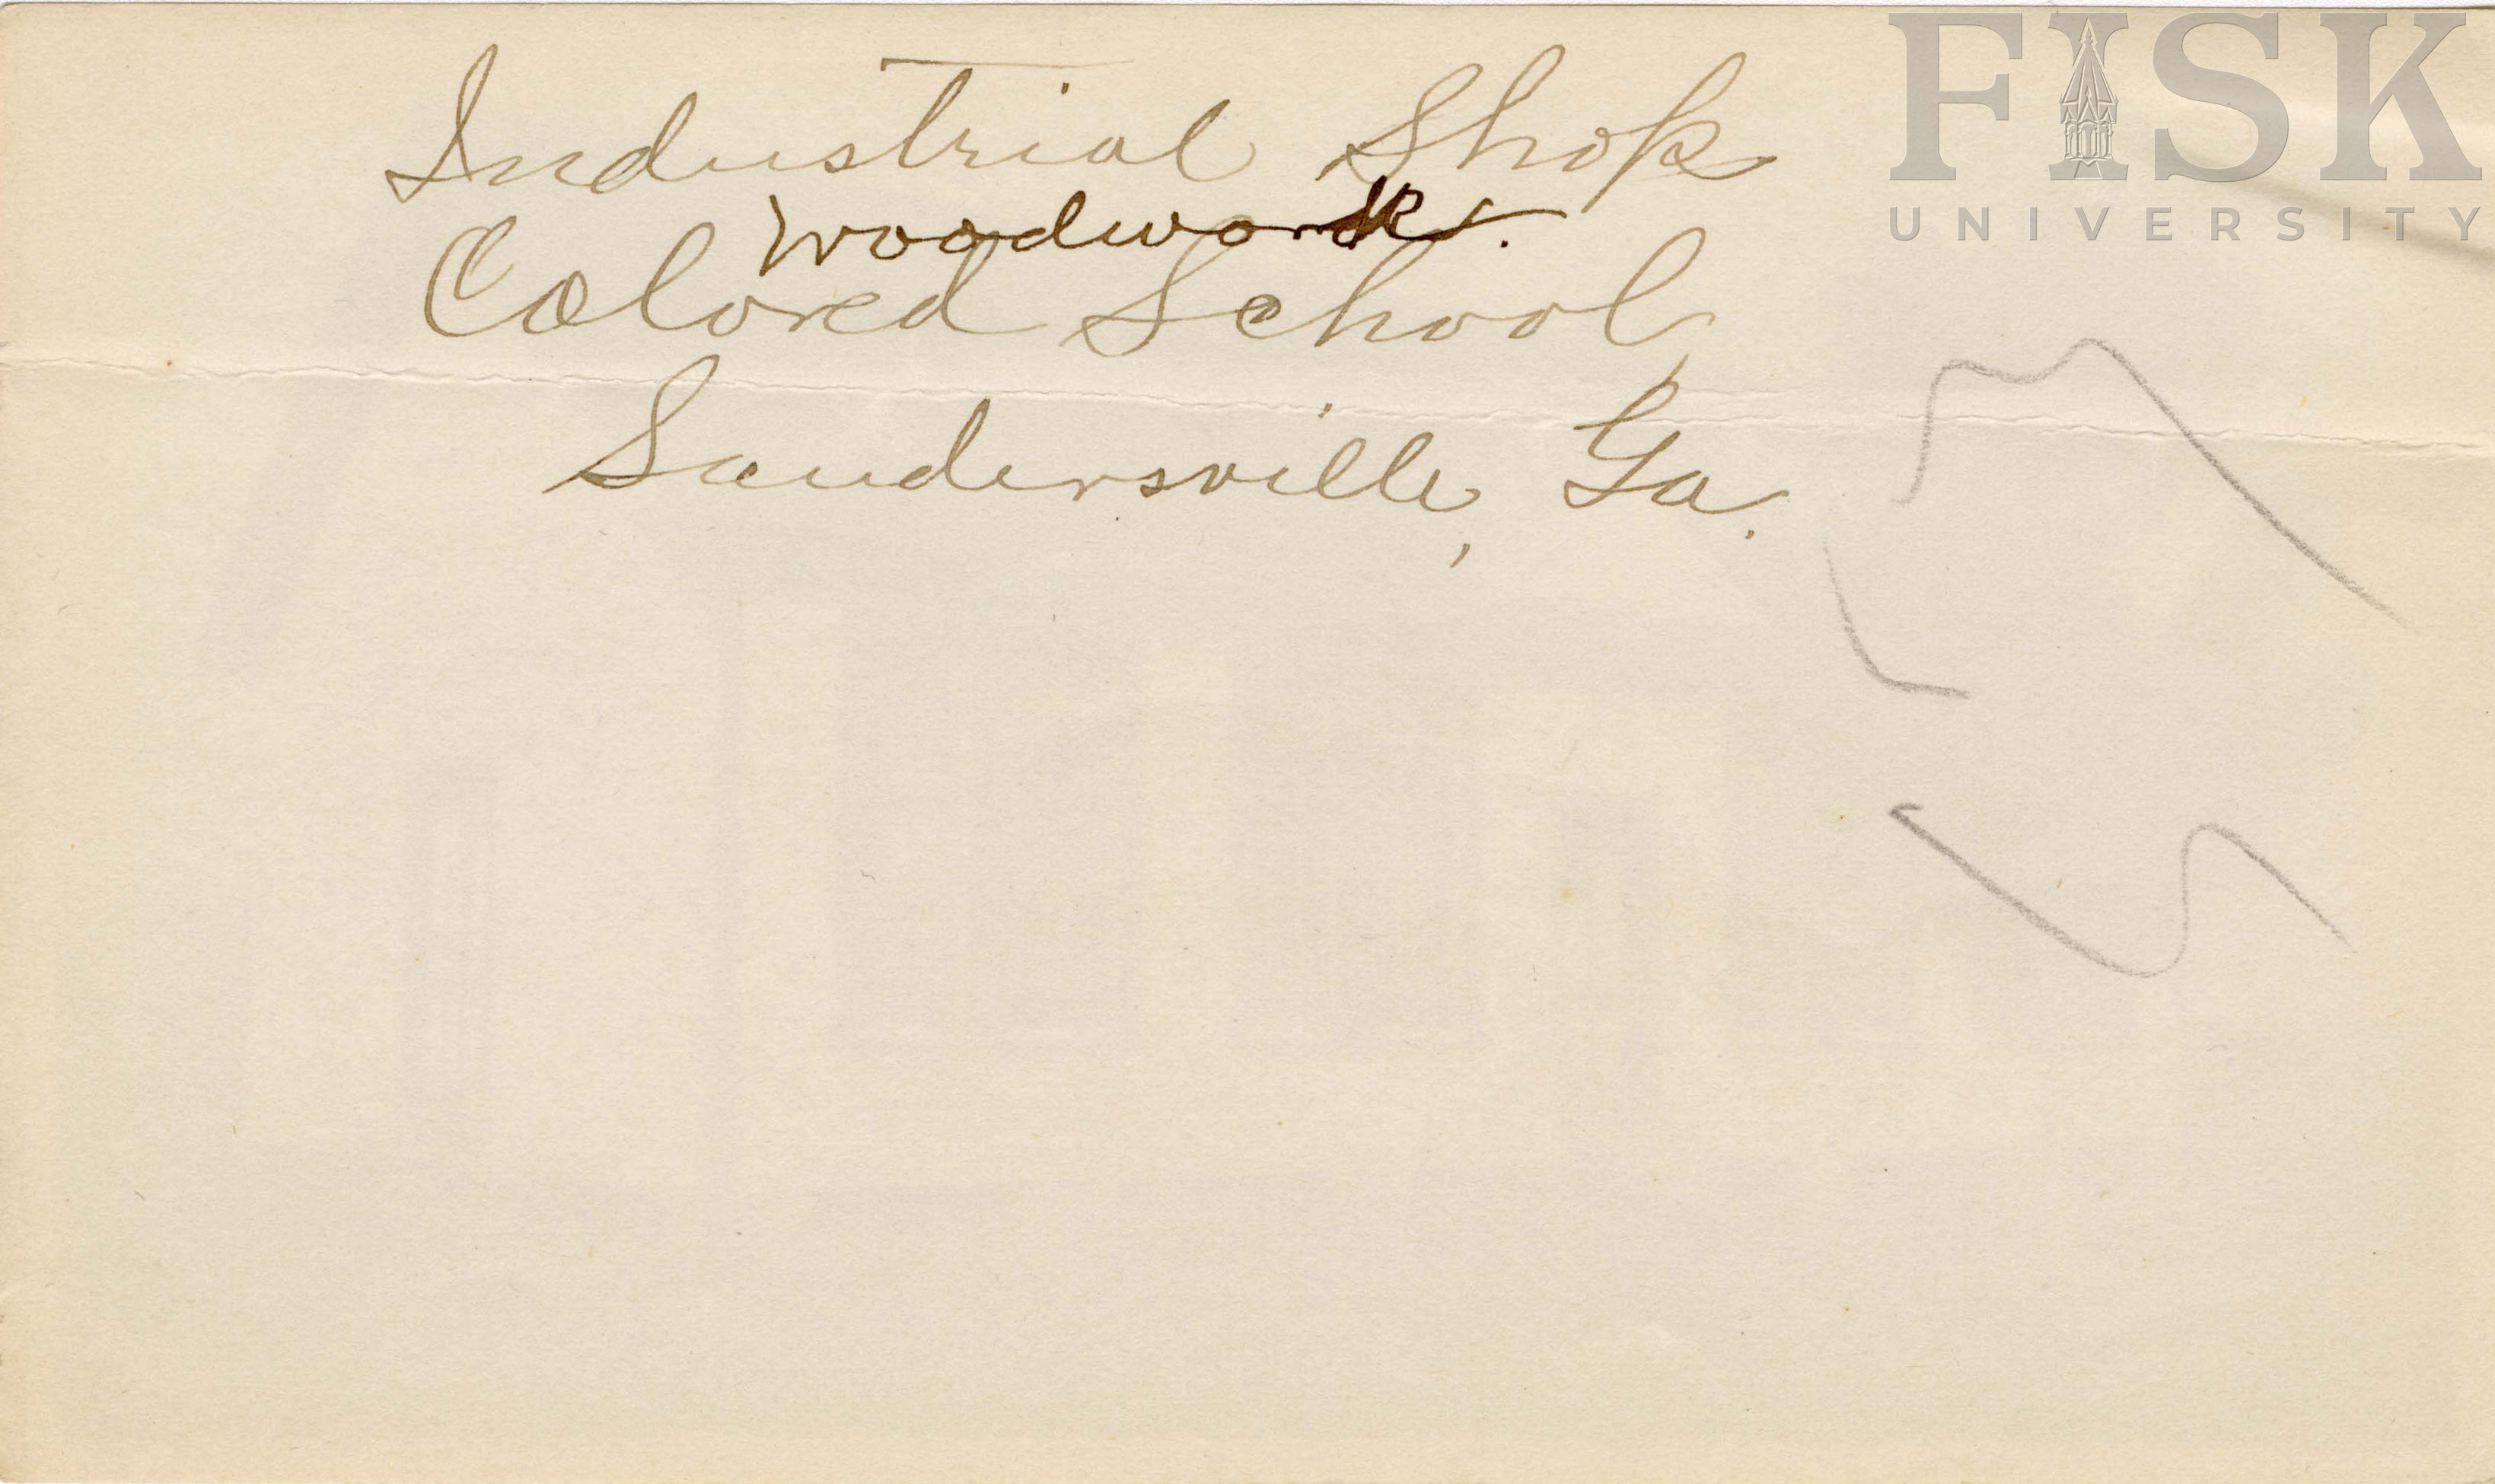 Industrial Shop
Woodwork.
Colored School,
Sandersville, Ga.
FISK
UNIVERSITY